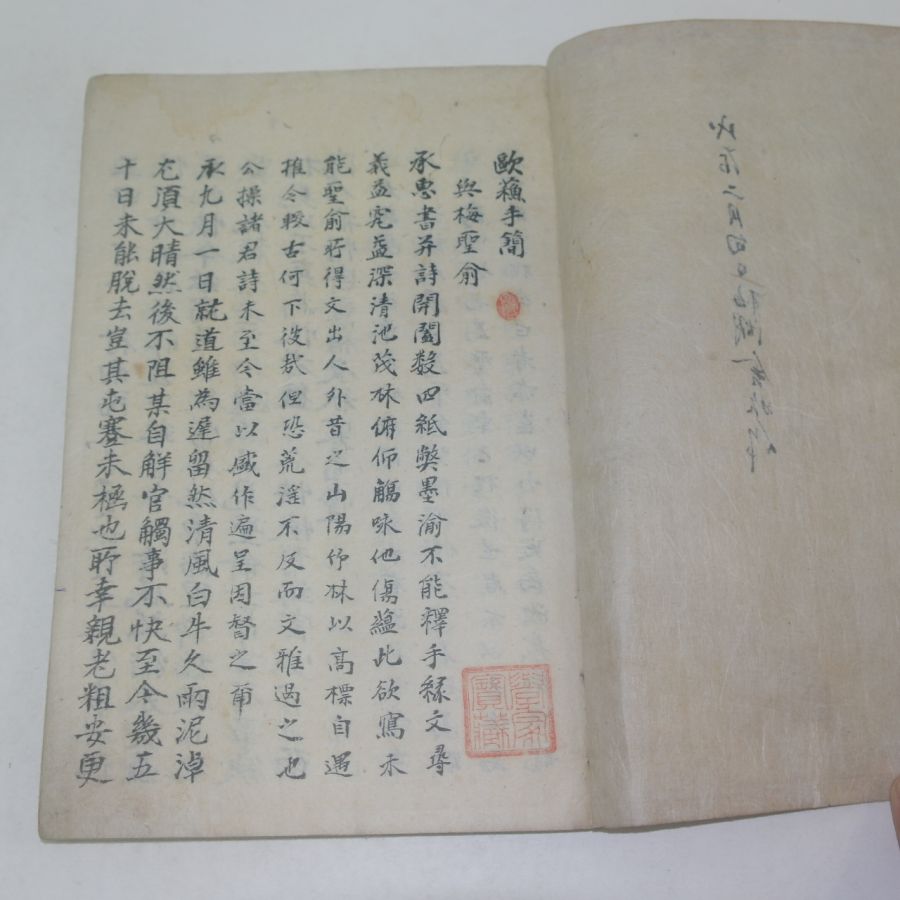 歐蘓手簡
與梅聖俞
承惠書并詩開闔數四紙弊墨渝不能釋手緑文尋
義益究益深清池茂林俯仰觴咏他傷蘊此欲寫未
能聖俞所得文出人外昔之山陽竹林以高標自遇
推今較古何下彼哉但恐荒淫不反而文雅過之也
公操諸君詩未至今當以盛作遍呈因督之爾
承九月一日就道雖為遲留然清風白牛久雨泥淖
尤須大晴然後不阻某自解官觸事不快至今幾五
十日未能脫去豈其屯蹇未極也所幸親老粗安更
寶藏